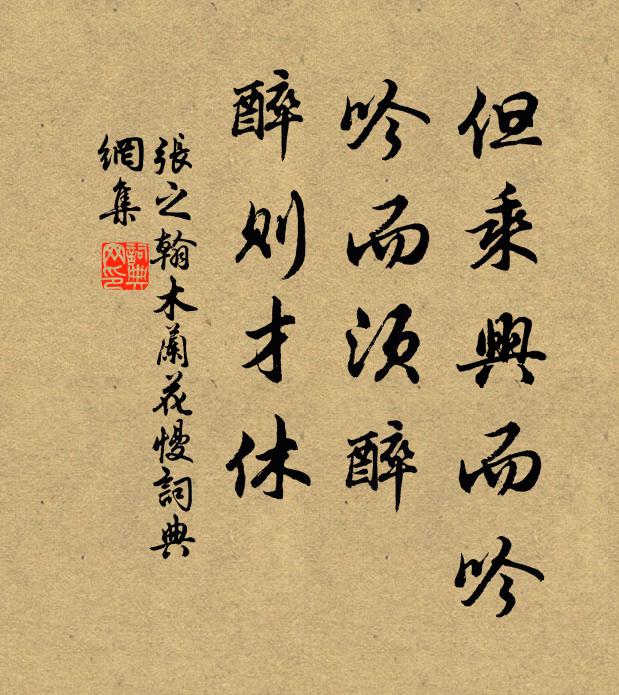 但乘興而吟
吟而須醉
醉則才休
張之翰木蘭花慢詞典
網集
詞典
网印